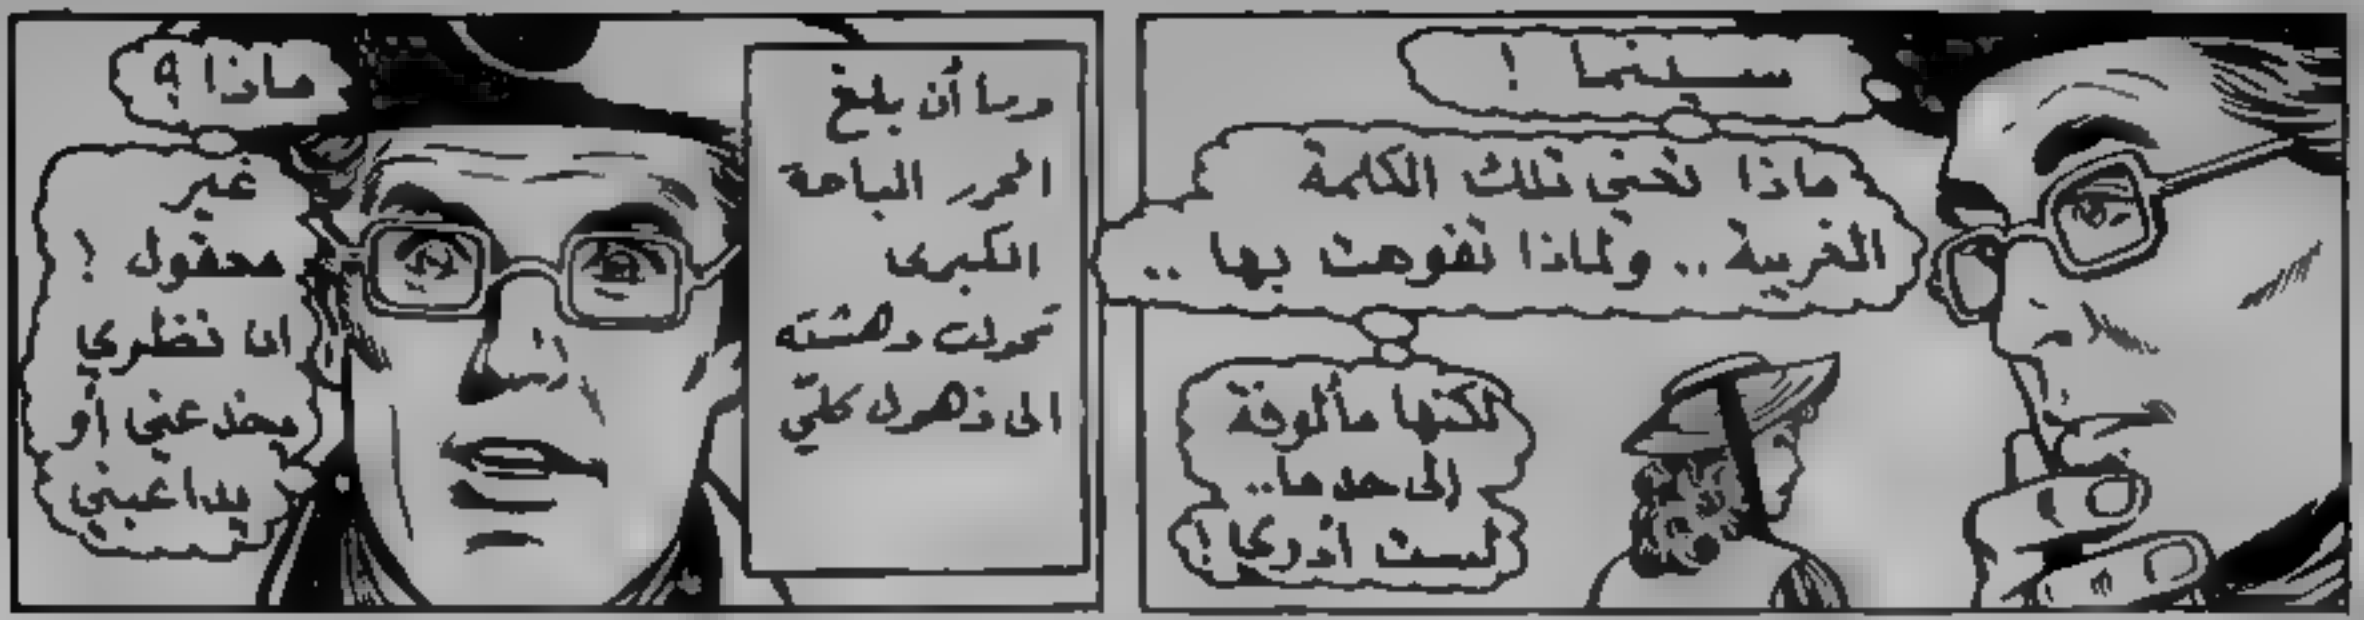 سينما !
ماذا تعني تلك الكلمة
الغريبة .. ولماذا تفوهت بها ..
لكنها مألوفة
إلى حد ما ..
لست أدري !
وما أن بلغ
الممر الباحة
الكبرى
تحولت دهشته
الى ذهول كليّ
ماذا ؟
غير
معقول !
ان نظري
يخدعني أو
يداعبني